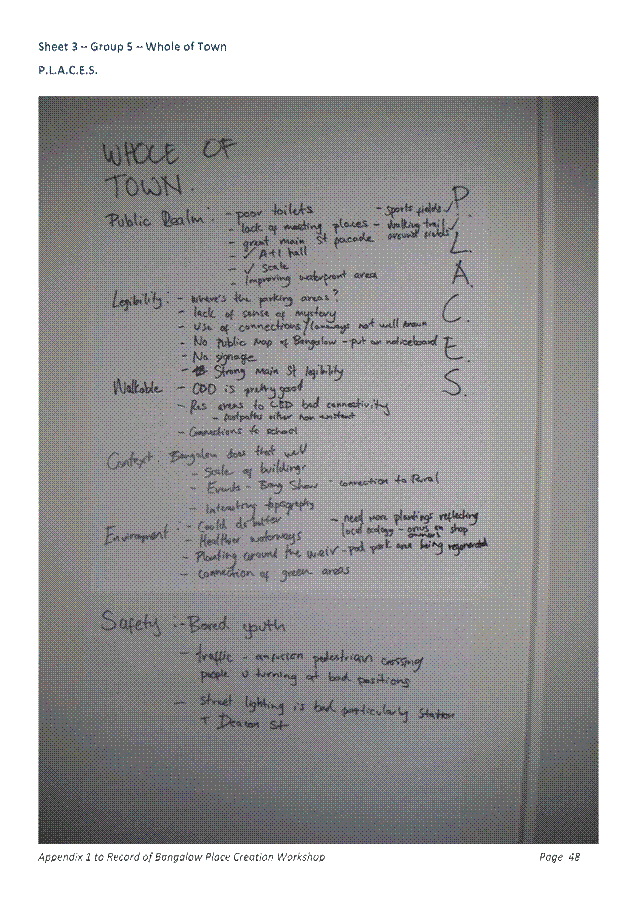 Sheet 3 – Group 5 – Whole of Town
P.L.A.C.E.S.
WHOLE OF
TOWN.
P.
L.
A.
C.
E.
S.
Public Realm: - poor toilets
- sports fields ✓
- lack of meeting places - walking trail ✓
around fields
- great main St facade
- ✓ A+I hall
- ✓ Scale
- Improving waterfront area
Legibility: - Where's the parking areas?
- lack of sense of mystery
- Use of connections/laneways not well known
- No Public Map of Bangalow - put on noticeboard
- No signage
- Strong Main St legibility
Walkable - CBD is pretty good
- Res areas to CBD bad connectivity
- footpaths either non existent
- Connections to school
Context: Bangalow does that well
- Scale of buildings
- Events - Bang Show - connection to Rural
- Interesting topography
Enviroment: - Could do better
- need more plantings reflecting
local ecology - onus on shop
owners
- Healthier waterways
- Planting around the weir - pod park area being regenerated
- connection of green areas
Safety: - Bored youth
- traffic - confusion pedestrian crossing
people u turning at bad positions
- Street lighting is bad particularly Station
+ Deacon St
Appendix 1 to Record of Bangalow Place Creation Workshop
Page 48